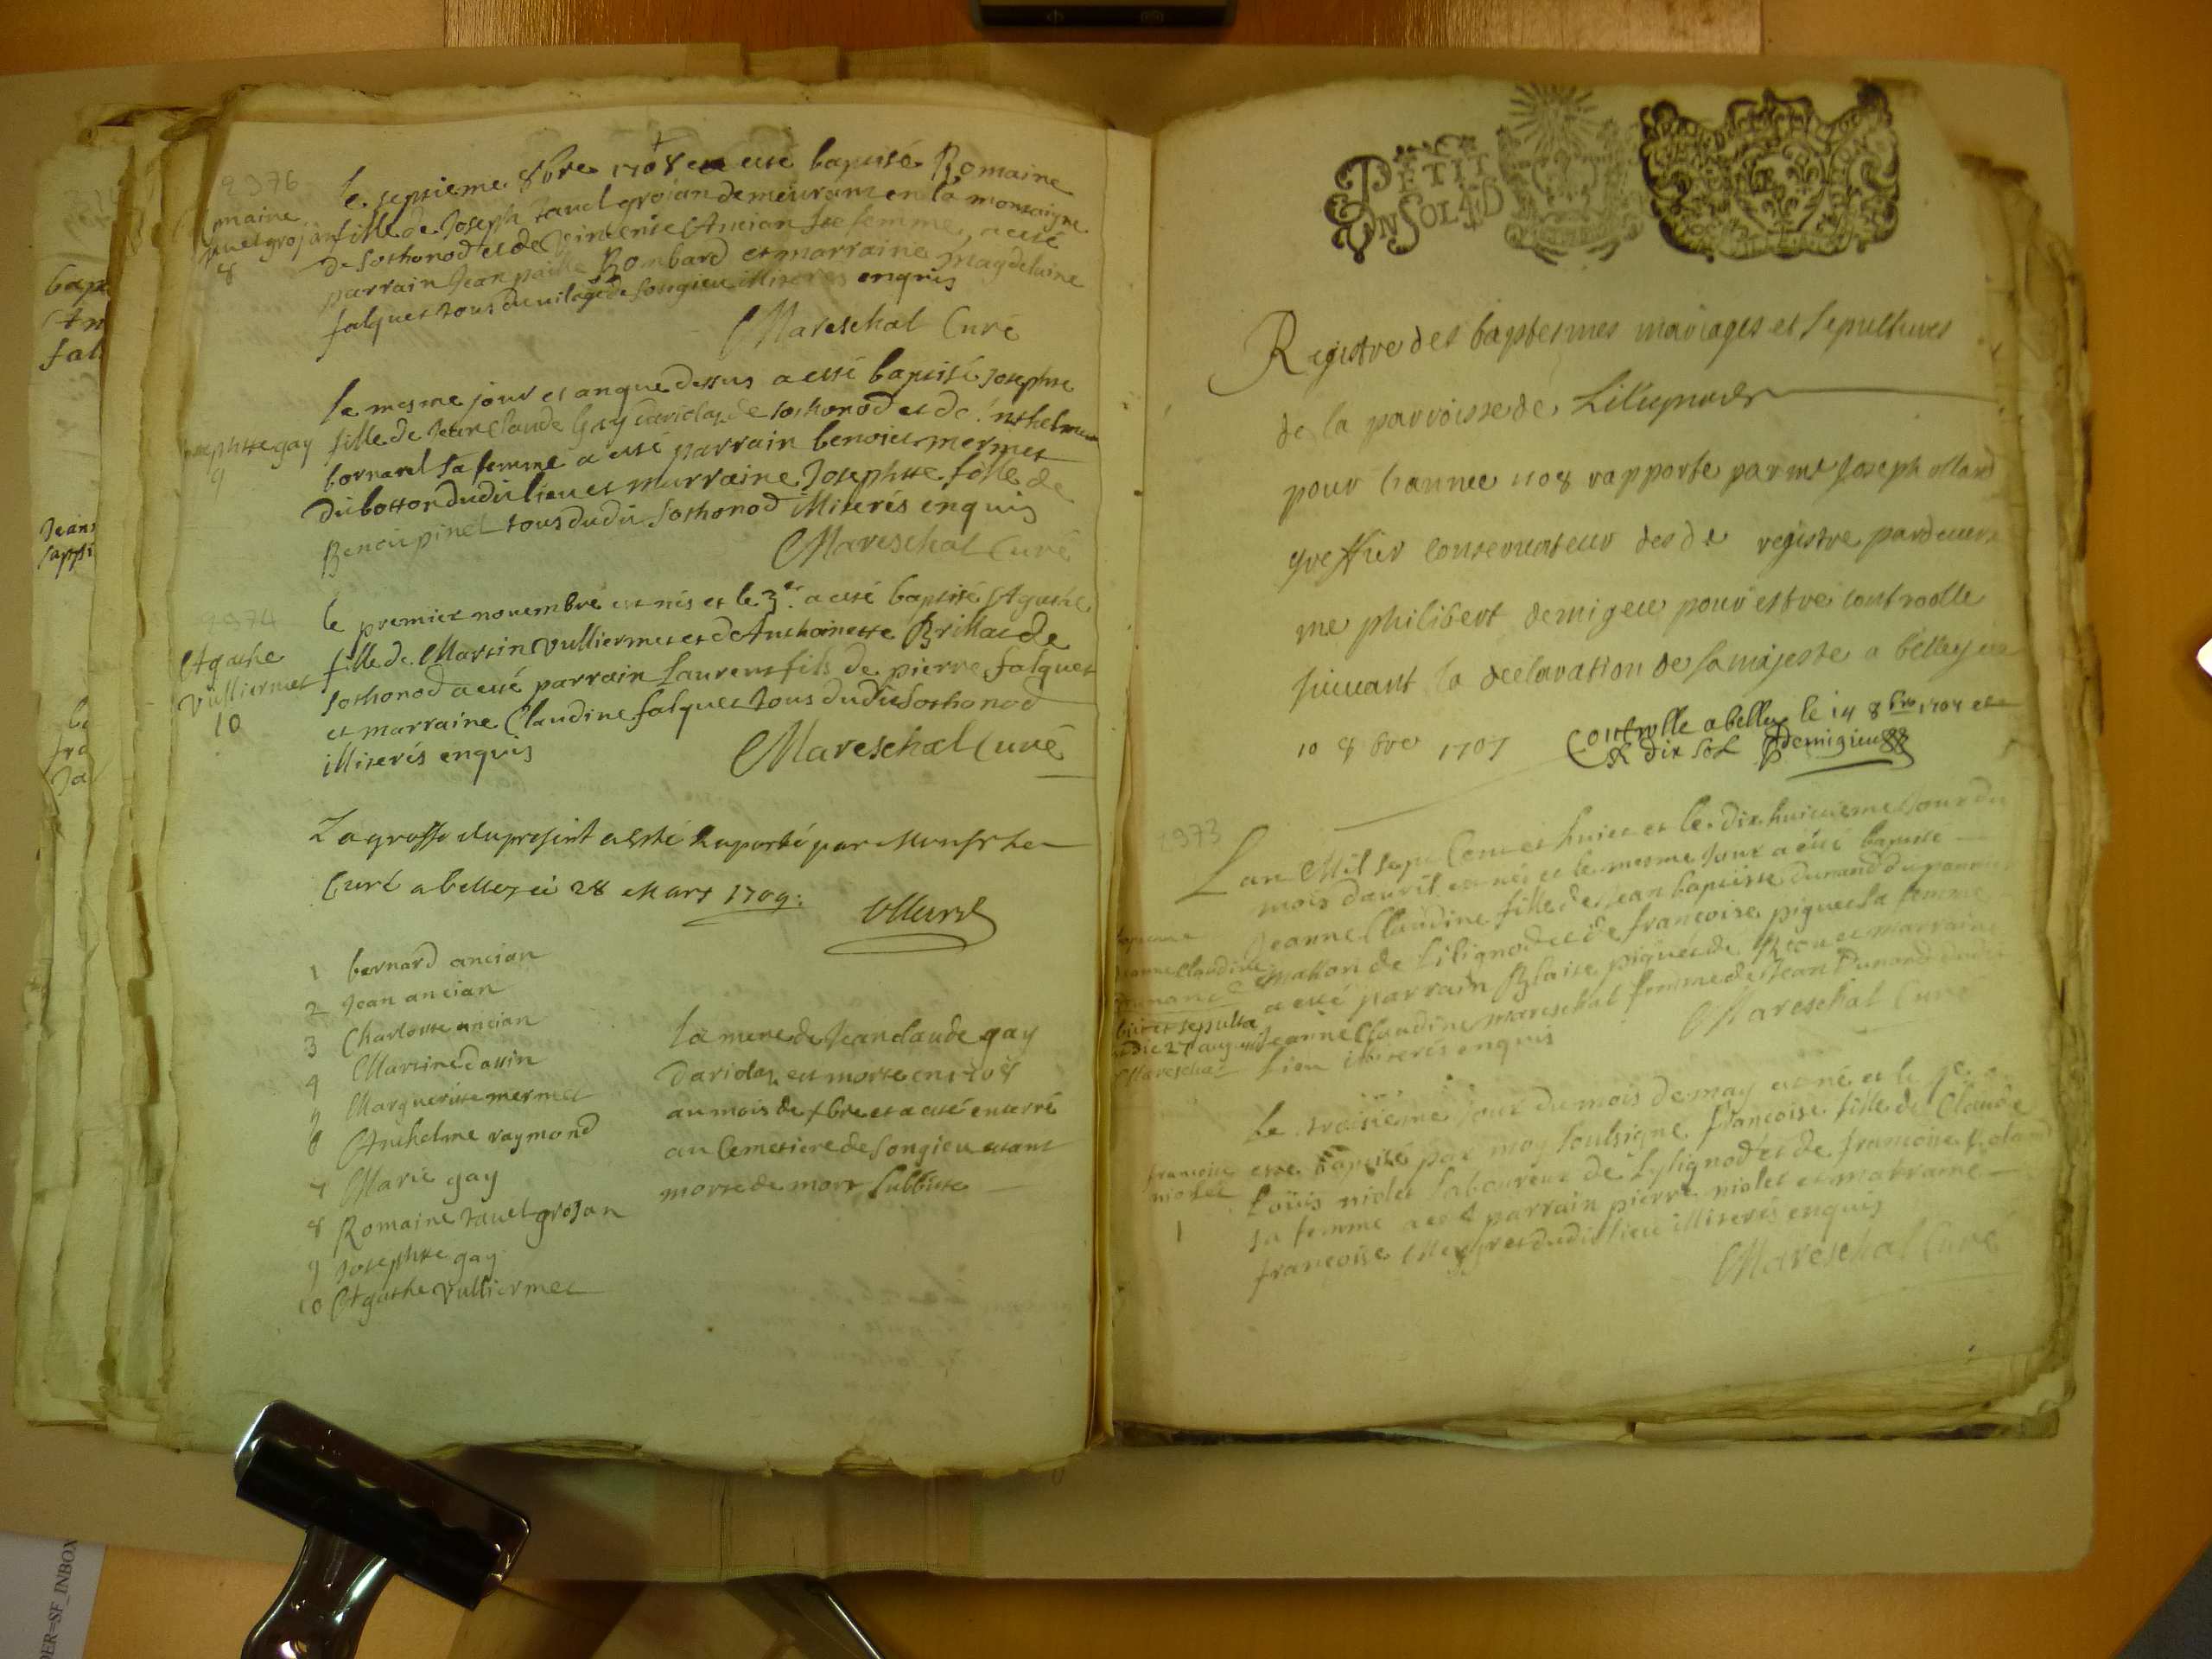 2976
le septieme 8bre 1708 a esté baptisé Romaine
fille de Joseph tavel grojan demeurant en la montaigne
de sothonod et de vincente Ancian sa femme, a esté
parrain Jean Bombard et marraine magdelaine
falquet tous du vilage de songieu illiterés enquis
Mareschal Curé
maine
tavel grojan
8
le mesme jour et an que dessus a esté baptisé josephte
fille de Jean Claude Gay dariolaz de sothonod et de
bornarel sa femme a esté parrain benoict mermet
du botton dudit lieu et marraine Josephtte fille de
Benoit pinel tous dudit sothonod illiterés enquis
Mareschal Curé
josephtte gay
9
2974
le premier novembre est née et le 3e a esté baptisé Agathe
fille de Martin vulliermet et de Anthoinette Brillat de
sothonod a esté parrain Laurent fils de pierre falquet
et marraine Claudine falquet tous dudit Sothonod
illiterés enquis
Mareschal Curé
Agathe
vulliermet
10
La grosse du present a esté raporté par Monsr le
Curé a belley ce 28 Mars 1709.
Ollard
1 bernard ancian
2 Jean ancian
3 Charlotte ancian
4 Martine dassin
5 Marguerite mermet
6 Anthelme raymond
7 Marie gay
8 Romaine tavel grosan
9 Josephte gay
10 Agathe vulliermet
la mere de Jean claude gay
dariolaz est morte en 1708
au mois de et a esté enterré
au Cemetiere de Songieu estant
morte de mort subbitte
PETIT
UN SOL 4 D
Registre des baptesmes mariages et sepultures
de la parroisse de Lilignod
pour l'annee 1708 rapporte par me Joseph ollard
greffier conservateur des de registre pardevers
me philibert demigieu pour estre controolle
suivant la declaration de sa majeste a belley ce
10 8bre 1707
Controlle a belley le 14 8bre 1707 et
R dix sol Demigieu
2973
Lan Mil sept Cent et huict et le dix huictieme jour du
mois davril est née et le mesme jour a esté baptisé
Jeanne Claudine fille de Jean baptiste dunand
de Lilignod et de françoise piquet sa femme
a esté parrain Blaise piquet de et marraine
Jeanne Claudine mareschal femme de Jean Dunand dudit
lieu illiterés enquis
Mareschal Curé
Jeanne Claudine
dunand
obiit et sepulta
die 27 augusti
Mareschal
Le troisieme jour du mois de may est né et le
esté baptisé par moy soubsigné françoise fille de Claude
Louis niolet laboureur de Lylignod et de francoise
sa femme a esté parrain pierre niolet et marraine
françoise dudit lieu illiterés enquis
Mareschal Curé
françoise
niolet
1